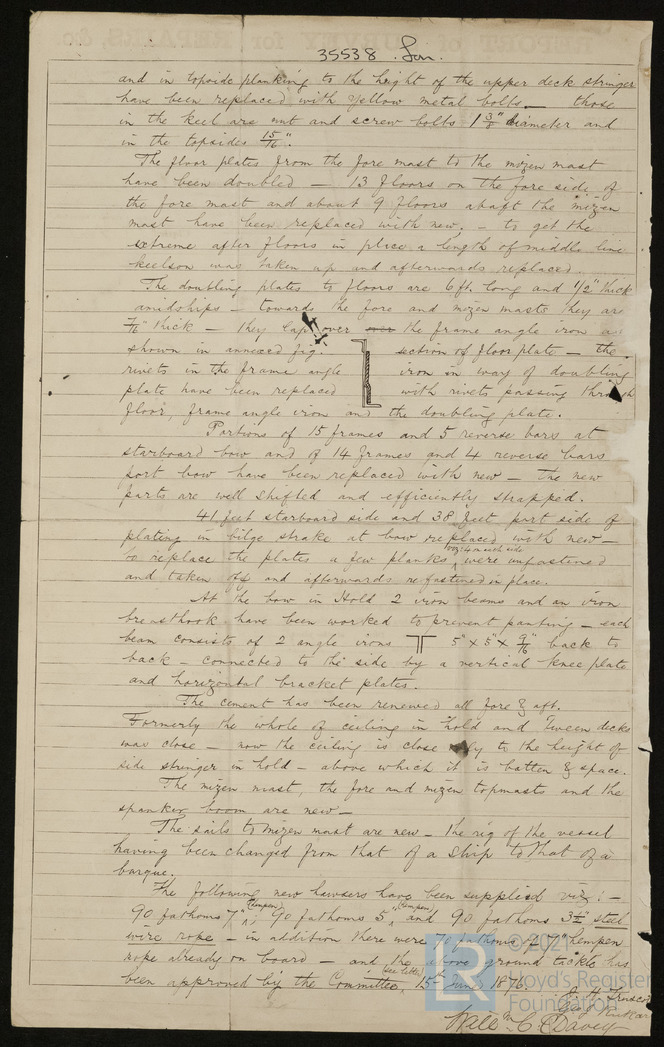 35538 Lon.
and in topside planking to the height of the upper deck stringer
have been replaced with yellow metal bolts — those
in the keel are nut and screw bolts 1 3/8" diameter and
in the topsides 15/16".
The floor plates from the fore mast to the mizen mast
have been doubled — 13 floors on the fore side of
the fore mast and about 9 floors abaft the mizen
mast have been replaced with new; — to get the
extreme after floors in place a length of middle line
keelson was taken up and afterwards replaced.
The doubling plates to floors are 6 ft. long and 1/2" thick
amidships — towards the fore and mizen masts they are
7/16 thick — they lap over over the frame angle iron as
shown in annexed fig. section of floor plate — the
rivets in the frame angle iron in way of doubling
plate have been replaced with rivets passing through
floor, frame angle iron and the doubling plate.
Portions of 15 frames and 5 reverse bars at
starboard bow and of 14 frames and 4 reverse bars
port bow have been replaced with new — the new
parts are well shifted and efficiently strapped.
41 feet starboard side and 38 feet port side of
plating in bilge strake at bow replaced with new —
to replace the plates a few planks were unfastened
and taken off and afterwards refastened in place.
At the bow in Hold 2 iron beams and an iron
breasthook have been worked to prevent panting — each
beam consists of 2 angle irons 5" x 5" x 9/16" back to
back — connected to the side by a vertical knee plate
and horizontal bracket plates.
The cement has been renewed all fore & aft.
Formerly the whole of ceiling in hold and tween decks
was close — now the ceiling is close only to the height of
side stringer in hold — above which it is batten & space.
The mizen mast, the fore and mizen topmasts and the
spanker boom are new —
The sails to mizen mast are new — the rig of the vessel
having been changed from that of a ship to that of a
barque.
The following new hawsers have been supplied viz: —
90 fathoms 7" (hempen), 90 fathoms 5 (hempen) and 90 fathoms 3 1/2" steel
wire rope — in addition there were 70 fathoms of 7" hempen
rope already on board — and the above ground tackle has
been approved by the Committee (see letter) 15th June 1876.
Wall. Wm C. Davey
© 2021
Lloyd's Register
Foundation